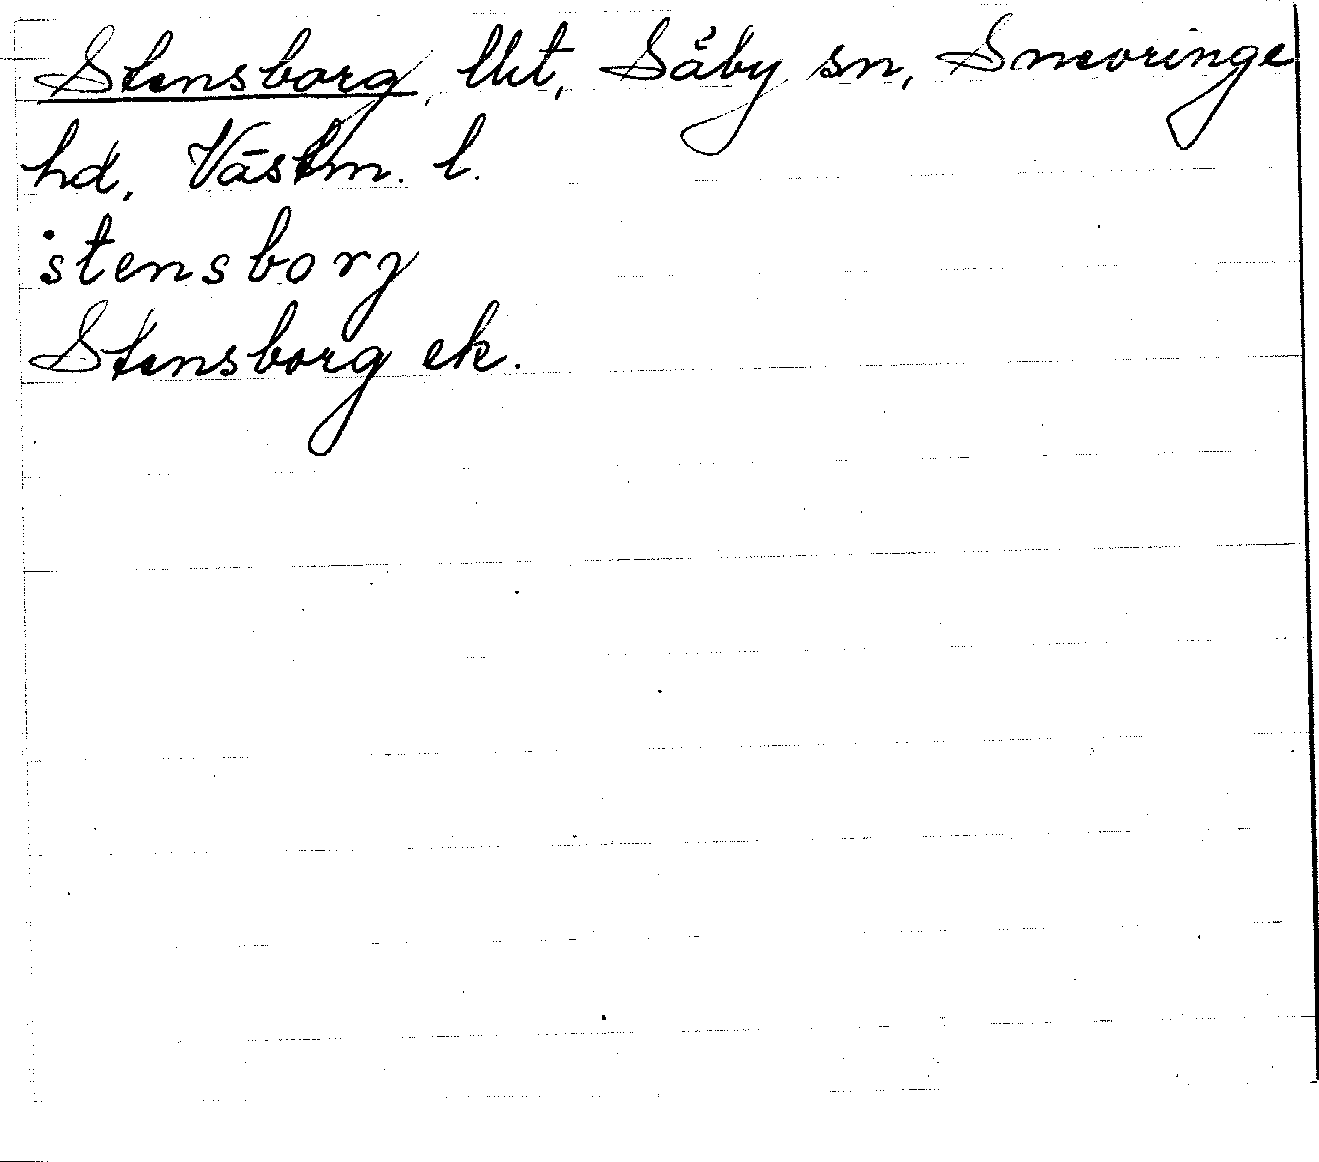 Stensborg, lht, Säby sn, Snevringe
hd, Västm. l.
stensborj
Stensborg ek.